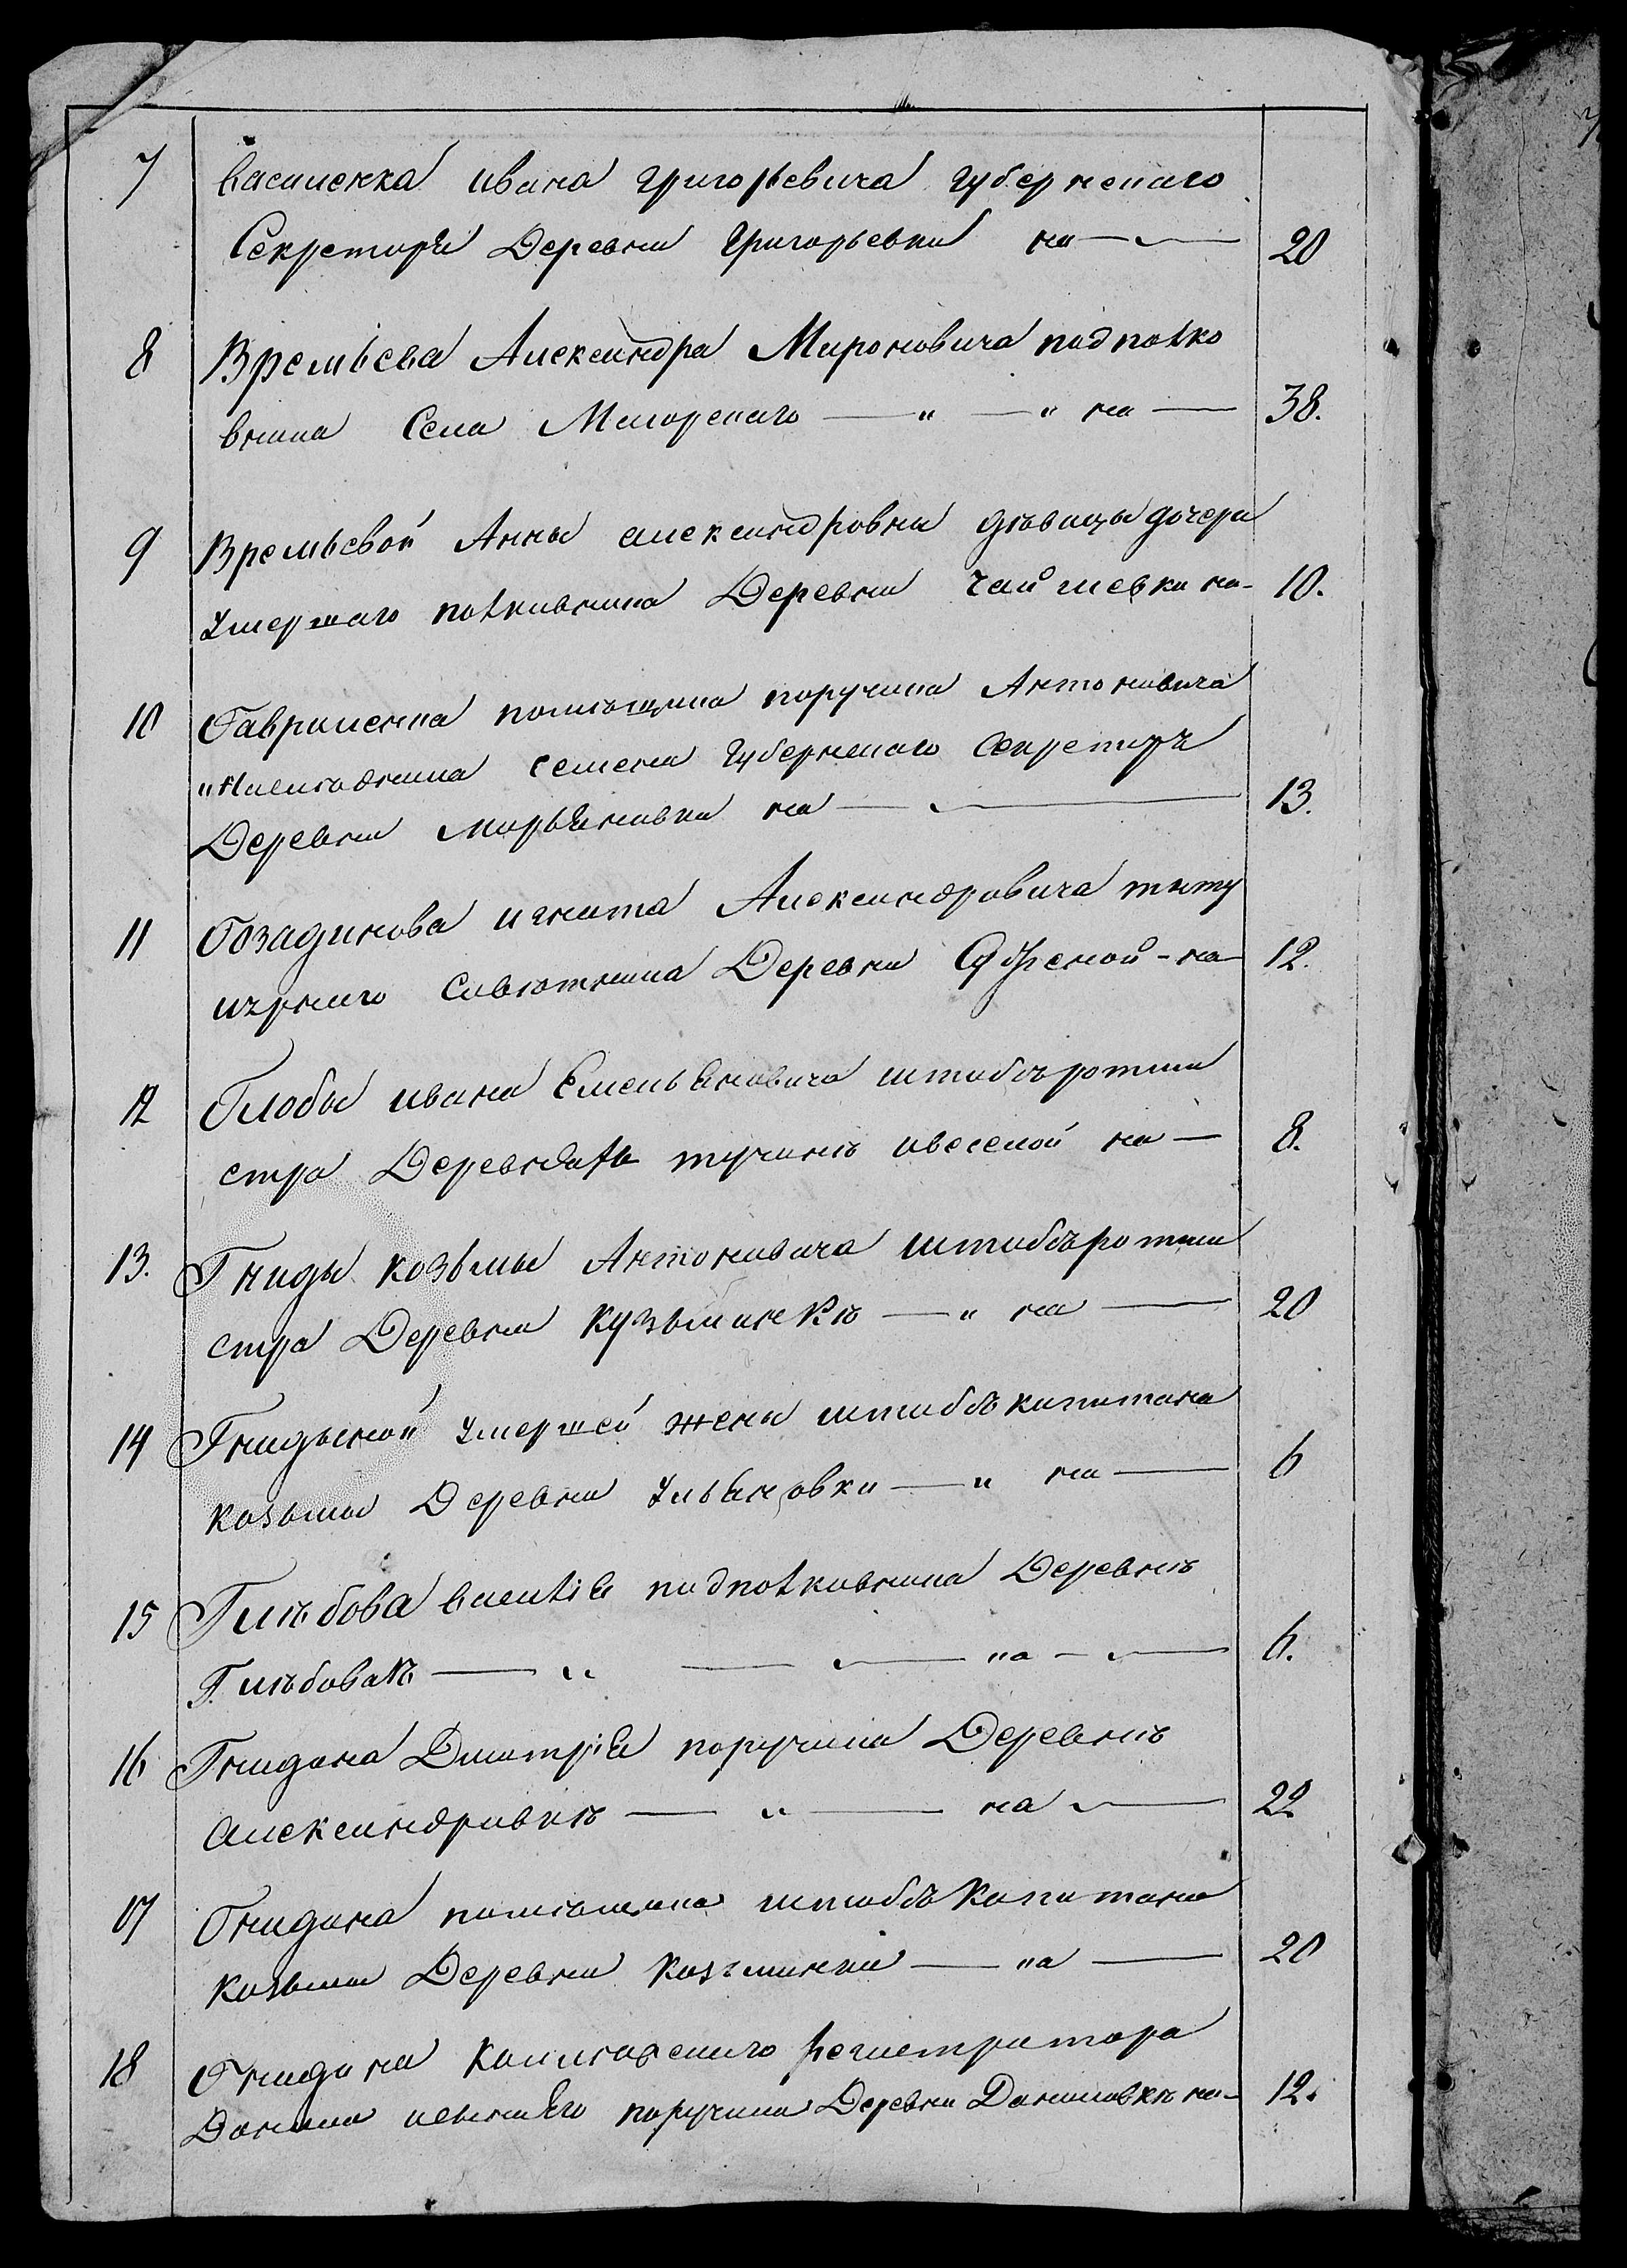 7 Василенка ивана григорьевича губернскаго
Секретаря Деревни Григорьевки на 20
8 Времьева Александра Мироновича подполко
вника Села Магорскаго на 38.
9 Времьевой Анны александровны дѣвицы дочери
умершаго полковника Деревни на 10.
10 Гавриленка помѣщика поручика Антоновича
наслѣдника семена Губернскаго Секретаръ
Деревни марьяновки на 13.
11 Гозадинова игната Александровича титу
лярнаго Совѣтника Деревни на 12.
12 Глобы ивана Емельяновича штабсъ ротми
стра Деревняхъ ивеселой на 8.
13. Гниды козьмы Антоновича штабсъ ротми
стра Деревни Кузьминкѣ на 20
14 умершей жены штабсъ капитана
козьмы Деревни Ульяновки на 6
15 Глѣбова василія подполковника Деревнѣ
Глѣбовкѣ на 6.
16 Гнидина Дмитрія поручика Деревнѣ
александровкѣ на 22
17 Гнидина помѣщика штабсъ Капитана
козьмы Деревни на 20
18 Гнидина Колежскаго регистратора
Данила поручика Деревни Даниловкѣ на 12.